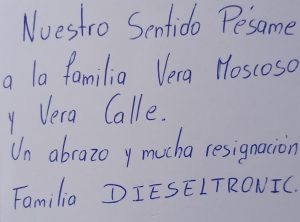 Nuestro Sentido Pésame
a la familia Vera Moscoso
y Vera Calle.
Un abrazo y mucha resignación
Familia DIESELTRONIC.